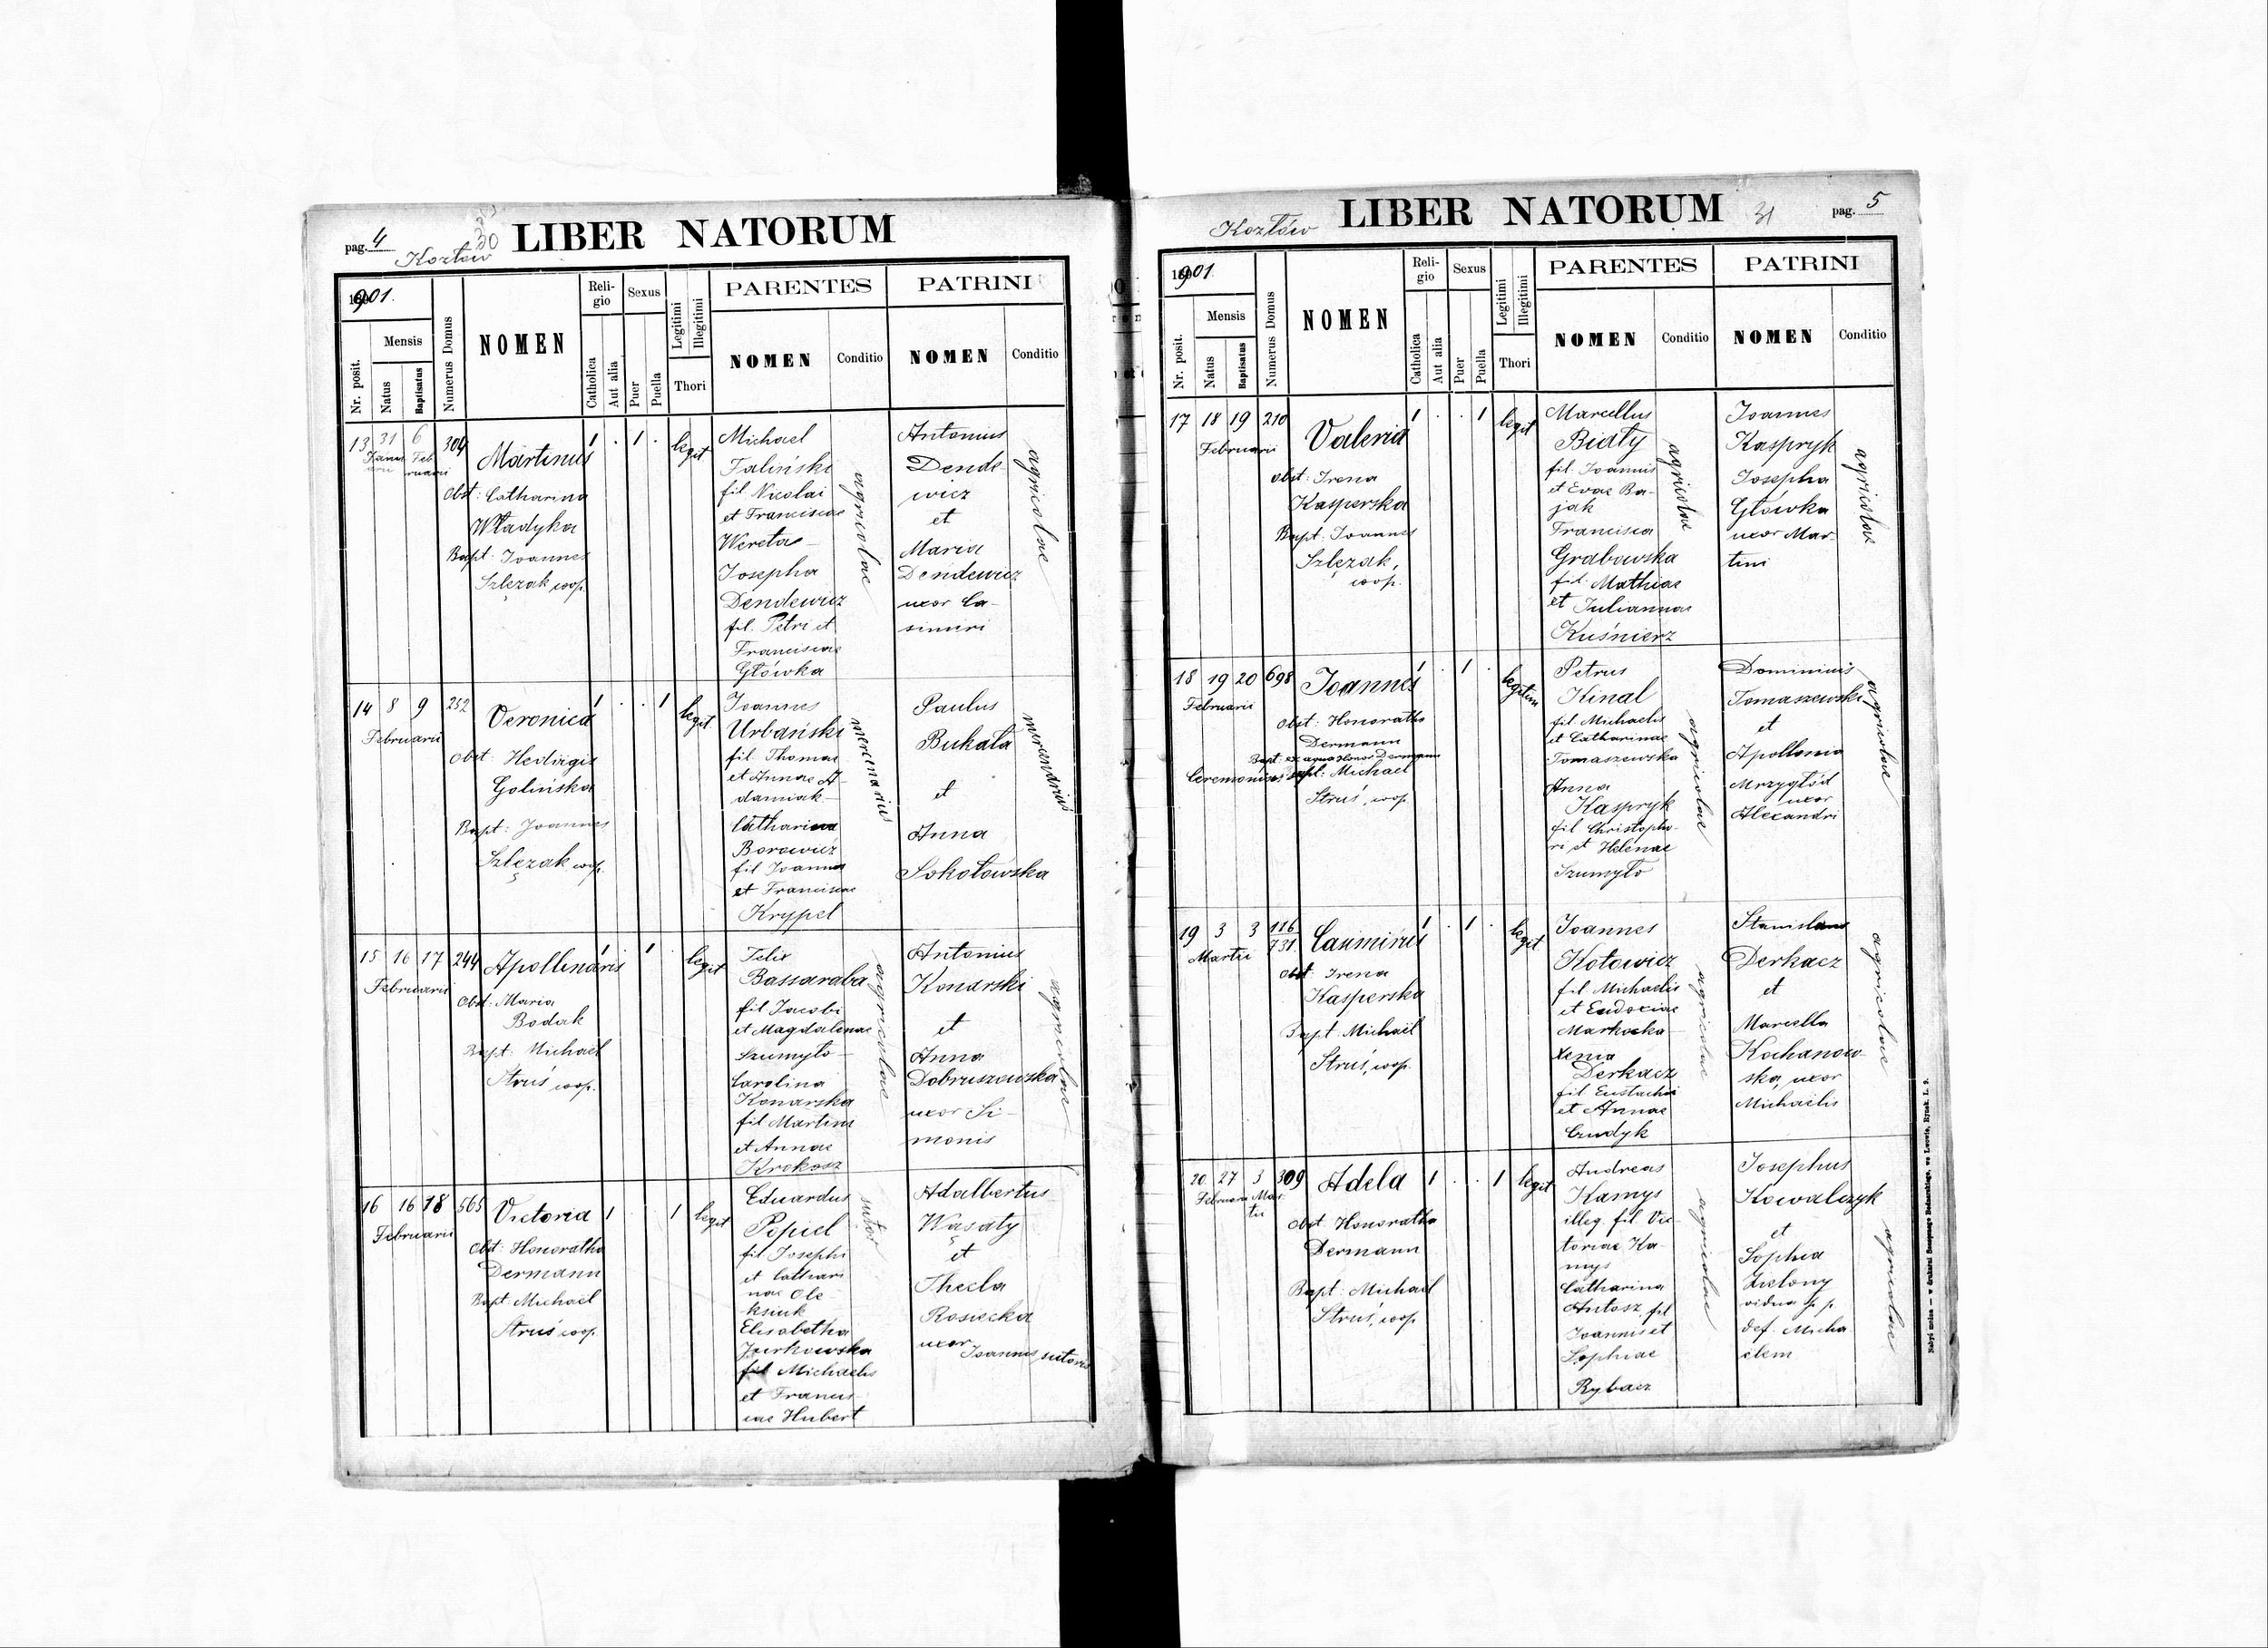 pag. 4
Kozłów
30
LIBER NATORUM
1901.
Nr. posit.
Mensis
Natus
Baptisatus
Numerus Domus
NOMEN
Religio
Catholica
Aut alia
Sexus
Puer
Puella
Legitimi
Illegitimi
Thori
PARENTES
NOMEN
Conditio
PATRINI
NOMEN
Conditio
13 31 Januarii 6 Februarii 304
Martinus
1 . 1 . legit
Obst: Catharina
Władyka
Bapt: Joannes
Szlęzak coop.
Michael
Faliński
fil Nicolai
et Franciscae
Wereta
Josepha
Dendewicz
fil. Petri et
Franciscae
Główka
agricolae
Antonius
Dende
wicz
et
Maria
Dendewicz
uxor Ca-
simiri
agricolae
14 8 9 Februarii 252
Veronica
1 . . 1 legit
Obst: Hedvigis
Golińska
Bapt: Joannes
Szlęzak coop.
Joannes
Urbański
fil. Thomae
et Annae A
damiak
Catharina
Borowicz
fil Joannis
et Franciscae
Krypel
mercenarius
Paulus
Bukała
et
Anna
Sokołowska
mercenarius
15 16 17 Februarii 244
Apollinaris
1 1 . legit
Obst: Maria
Bodak
Bapt: Michaël
Struś coop.
Felix
Bassaraba
fil Jacobi
et Magdalenae
Szumyło
Carolina
Konarska
fil Martini
et Annae
Krokosz
agricolae
Antonius
Konarski
et
Anna
Dobruszowska
uxor Si-
monis
agricolae
16 16 18 Februarii 565
Victoria
1 . . 1 legit
Obst: Honoratha
Dermann
Bapt: Michaël
Struś coop.
Eduardus
Popiel
fil Josephi
et Cathari
nae Ole
ksiuk
Elisabetha
fil Michaelis
et Francis
cae Hubert
sutor
Adalbertus
Wąsaty
et
Thecla
Rosiecka
uxor
Joannis sutoris
Kozłów
LIBER NATORUM
31
pag. 5
1901.
Nr. posit.
Mensis
Natus
Baptisatus
Numerus Domus
NOMEN
Religio
Catholica
Aut alia
Sexus
Puer
Puella
Legitimi
Illegitimi
Thori
PARENTES
NOMEN
Conditio
PATRINI
NOMEN
Conditio
17 18 19 Februarii 210
Valeria
1 . . 1 legit
obst: Irena
Kasperska
Bapt: Joannes
Szlęzak,
coop.
Marcellus
Biały
fil. Joannis
et Evae Ba-
jak
Francisca
Grabowska
fil. Mathiae
et Juliannae
Kuśnierz
agricolae
Joannes
Kaspryk
Josepha
Główka
uxor Mar-
tini
agricolae
18 19 20 Februarii 698
Joannes
1 . 1 . legitim
Obst: Honoratha
Dermann
Bapt. ex aqua Honor Dermann
Ceremonias suppl: Michaël
Struś, coop.
Petrus
Kinal
fil Michaelis
et Catharinae
Tomaszewska
Anna
Kaspryk
fil Christopho-
ri et Helenae
Szumyło
agricolae
Dominicus
Tomaszewski
et
Apollonia
Mrzygłód
uxor
Alexandri
agricolae
19 3 3 Martii 116
731
Casimirus
1 . 1 . legit
Obst: Irena
Kasperska
Bapt Michaël
Struś, coop.
Joannes
Kotowicz
fil Michaelis
et Eudociae
Xenia
Derkacz
fil Eustachii
et Annae
agricolae
Stanislaus
Derkacz
et
Marcella
Kochanow-
ska, uxor
Michaëlis
agricolae
20 27 Februarii 3 Martii 309
Adela
1 . . 1 legit
Obst: Honoratha
Dermann
Bapt: Michaël
Struś, coop.
Andreas
Kamys
illeg. fil. Vic-
toriae Ka-
mys
Catharina
Antosz fil
Joannis et
Sophiae
Rybacz
agricolae
Josephus
Kowalczyk
et
Sophia
Zielony
vidua p. p.
def. Micha
elem
agricolae